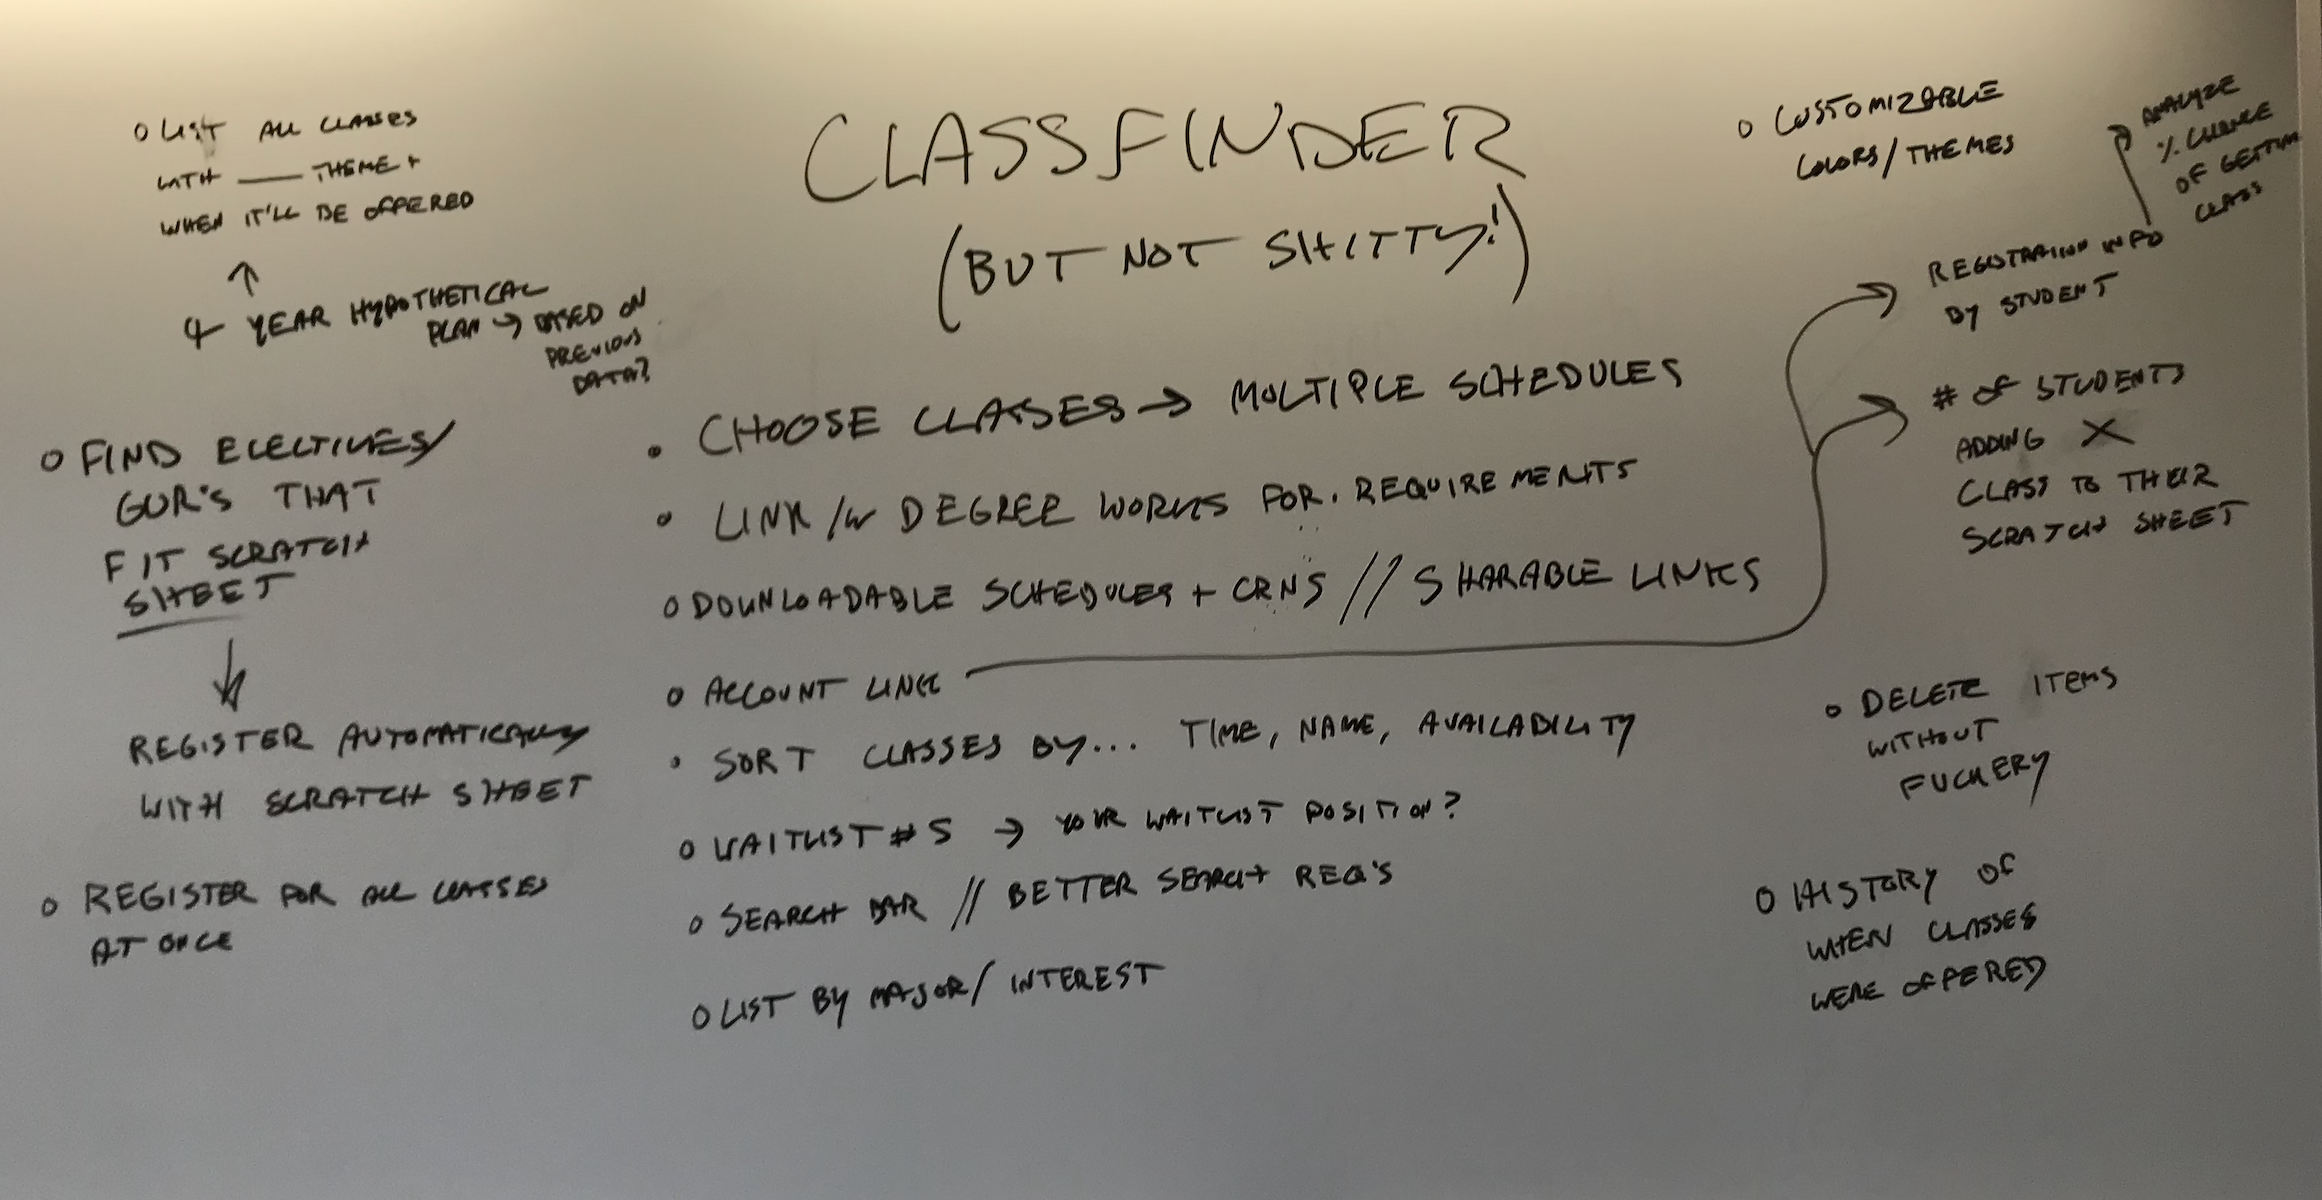 CLASSFINDER
(BUT NOT SHITTY!)
o LIST ALL CLASSES
WITH ____ THEME +
WHEN IT'LL BE OFFERED
↑
4 YEAR HYPOTHETICAL
PLAN → BASED ON
PREVIOUS
DATA?
o FIND ELECTIVES/
GUR'S THAT
FIT SCRATCH
SHEET
↓
REGISTER AUTOMATICALLY
WITH SCRATCH SHEET
o REGISTER FOR ALL CLASSES
AT ONCE
• CHOOSE CLASSES → MULTIPLE SCHEDULES
o LINK /W DEGREE WORKS FOR. REQUIREMENTS
o DOWNLOADABLE SCHEDULES + CRNS // SHARABLE LINKS
o ACCOUNT LINK
• SORT CLASSES BY... TIME, NAME, AVAILABILITY
o WAITLIST #S → YOUR WAITLIST POSITION?
o SEARCH BAR // BETTER SEARCH REQ'S
o LIST BY MAJOR/ INTEREST
o CUSTOMIZABLE
COLORS/THEMES
ANALYZE
% CHANCE
OF GETTING
CLASS
REGISTRATION INFO
BY STUDENT
# OF STUDENTS
ADDING X
CLASS TO THEIR
SCRATCH SHEET
o DELETE ITEMS
WITHOUT
FUCKERY
o HISTORY OF
WHEN CLASSES
WERE OFFERED